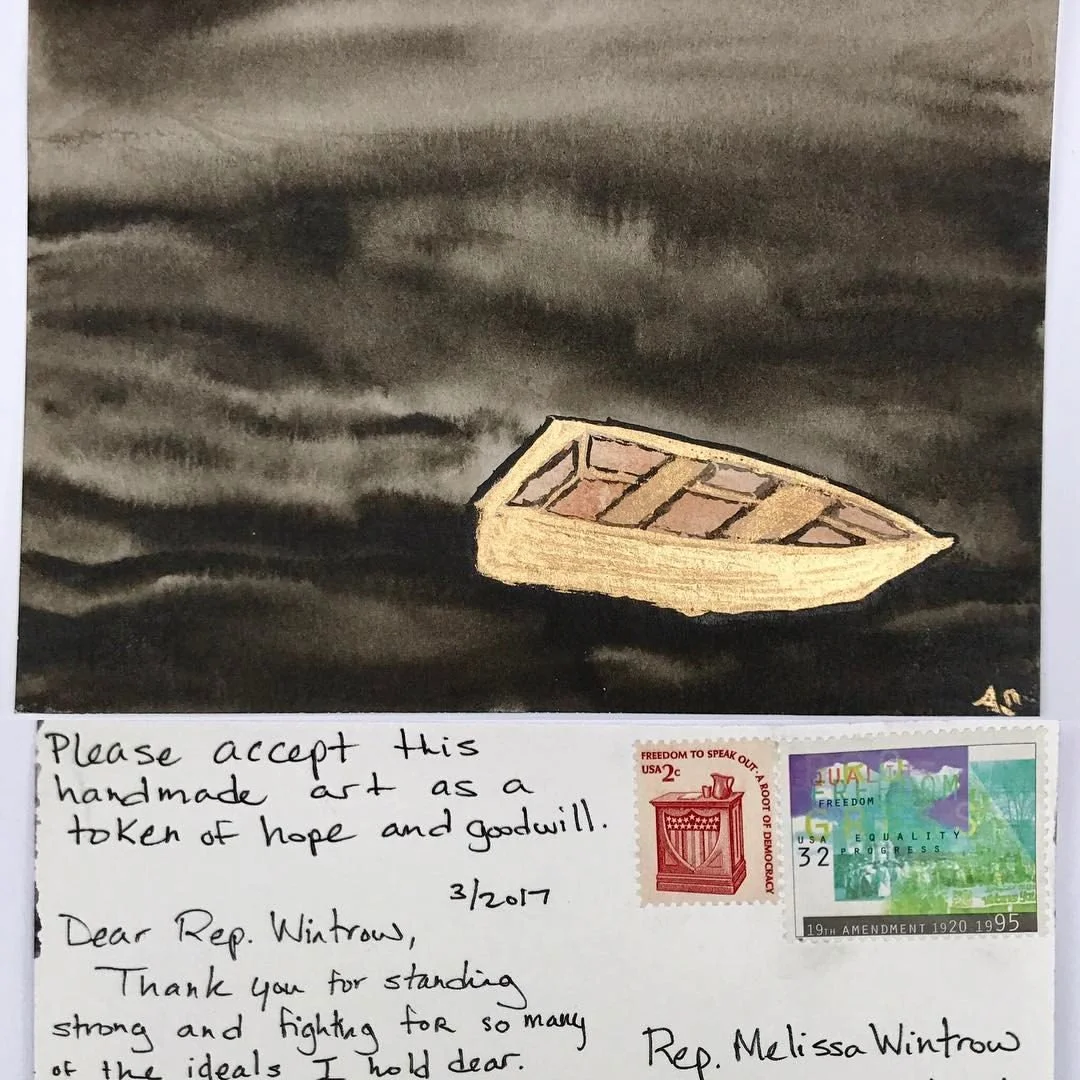 An
Please accept this
handmade art as a
token of hope and goodwill.
3/2017
Dear Rep. Wintrow,
Thank you for standing
strong and fighting for so many
of the ideals I hold dear.
FREEDOM TO SPEAK OUT · A ROOT OF DEMOCRACY
USA 2c
EQUALITY
FREEDOM
FREEDOM
USA
32
EQUALITY
PROGRESS
19TH AMENDMENT 1920 1995
Rep. Melissa Wintrow